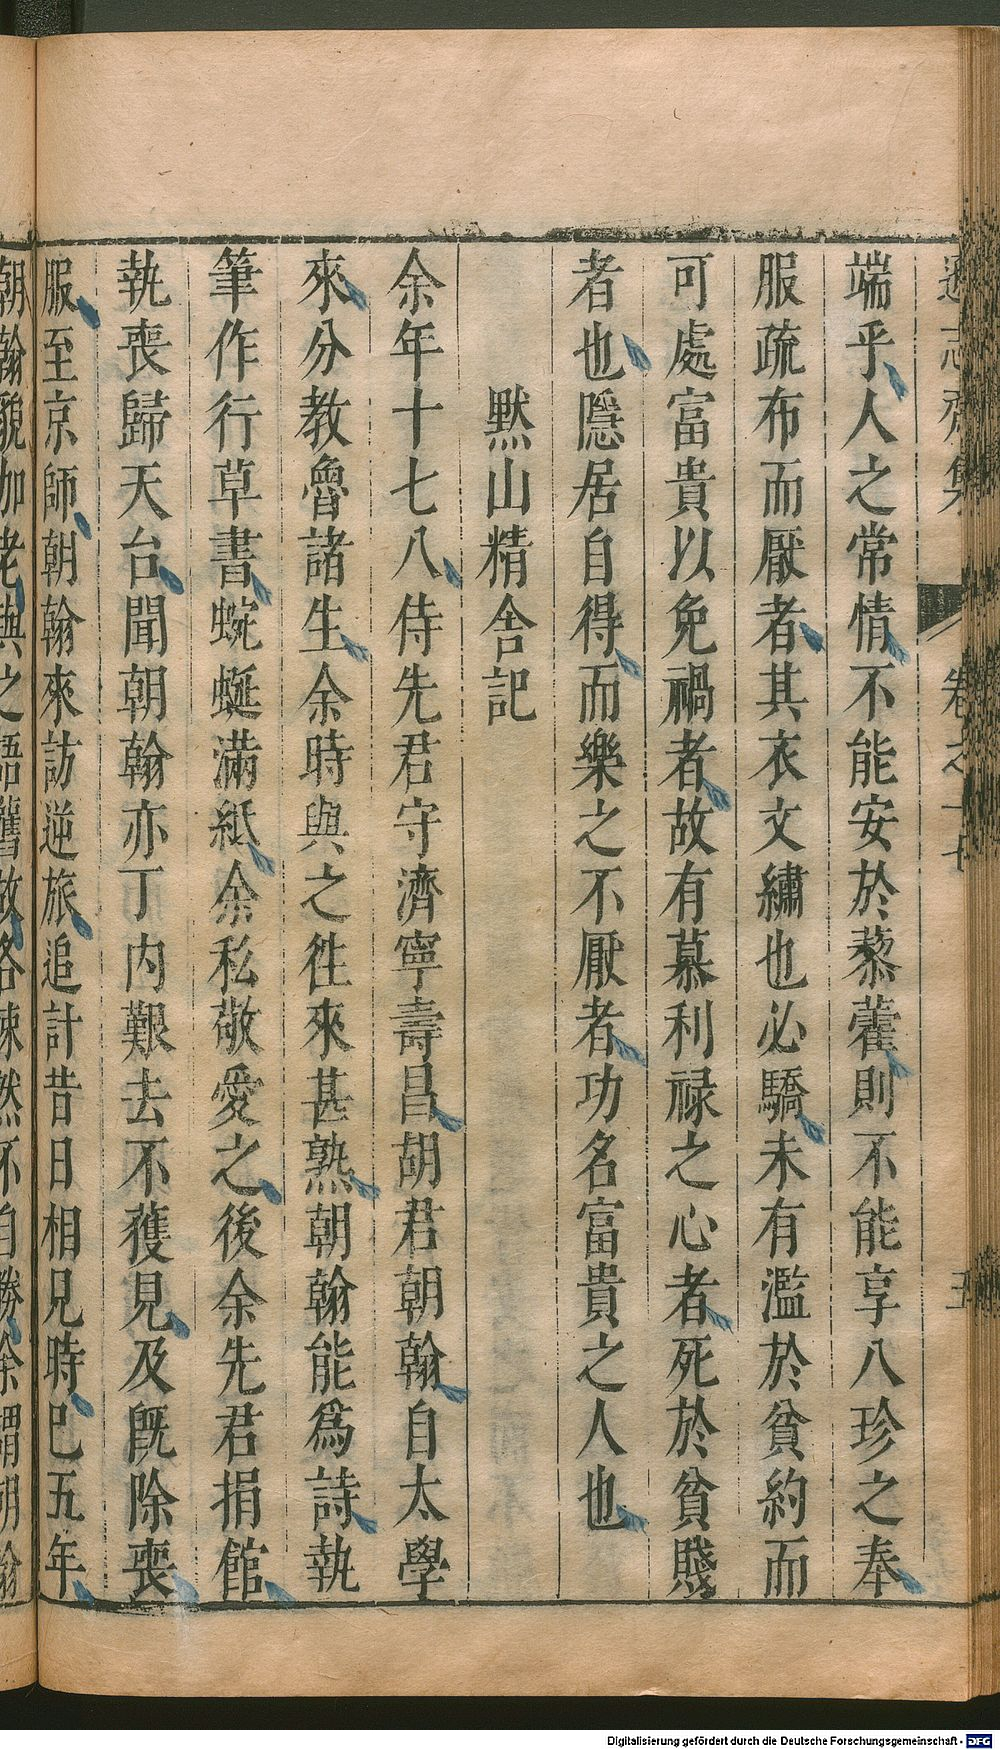 遜志齋集 卷之十七 五
端乎人之常情不能安於藜藿則不能享八珍之奉
服疏布而厭者其衣文繡也必驕未有濫於貧約而
可處富貴以免禍者故有慕利祿之心者死於貧賤
者也隱居自得而樂之不厭者功名富貴之人也
默山精舍記
余年十七八侍先君守濟寧壽昌胡君朝翰自太學
來分教魯諸生余時與之徃來甚熟朝翰能爲詩執
筆作行草書蜿蜒滿紙余私敬愛之後余先君捐館
執喪歸天台聞朝翰亦丁內艱去不獲見及旣除喪
服至京師朝翰來訪逆旅追計昔日相見時已五年
朝翰貌加老與之語舊故各悚然不自勝余謂朝翰
Digitalisierung gefördert durch die Deutsche Forschungsgemeinschaft - DFG